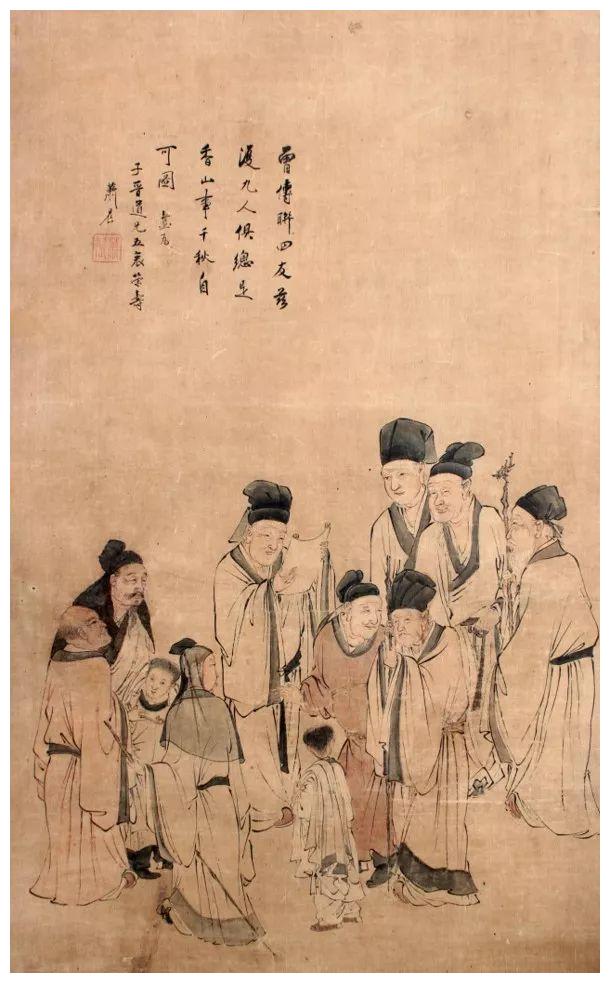 曾傳聯四友茲
復九人俱總是
香山事千秋自
可圖 畫為
子晉道兄五袠榮壽
蕭晨